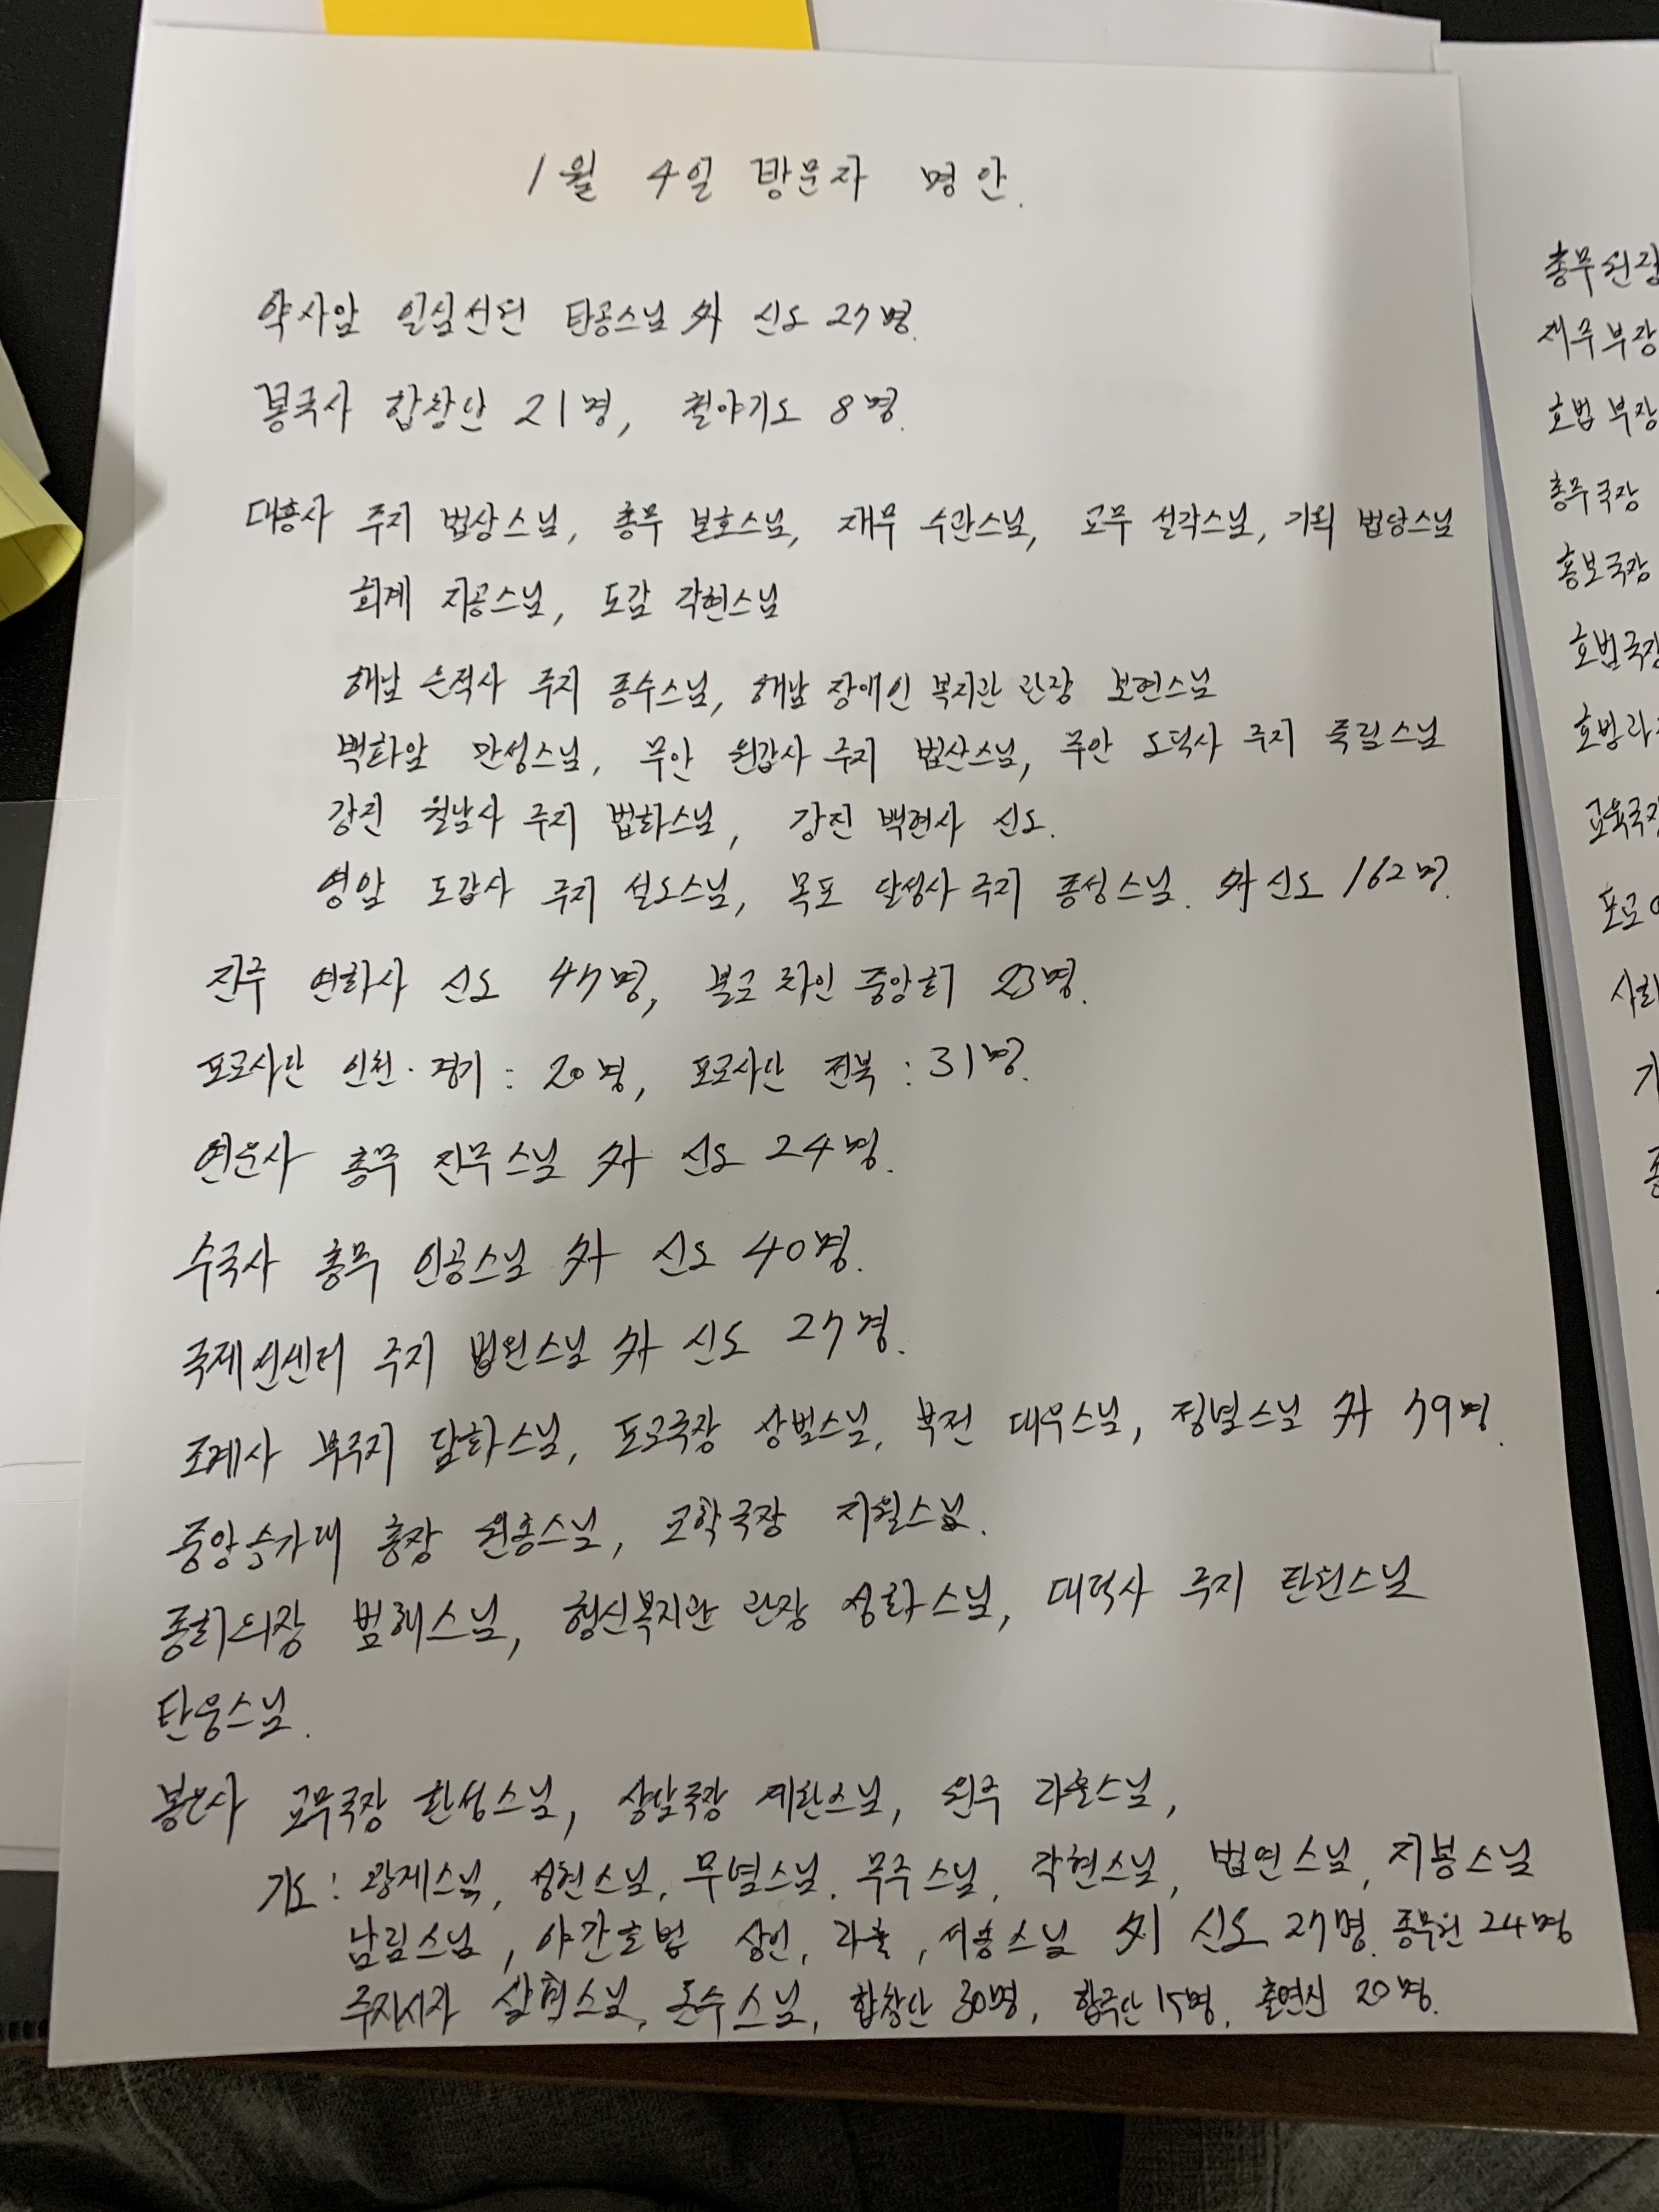 1월 4일 방문자 명안.
약사암 일심선원 탄공스님 外 신도 27명.
봉국사 합창단 21명, 철야기도 8명.
대흥사 주지 법상스님, 총무 보호스님, 재무 수관스님, 교무 설각스님, 기획 법당스님
회계 지공스님, 도감 각현스님
해남 은적사 주지 종수스님, 해남 장애인 복지관 관장 보현스님
백화암 만성스님, 무안 원갑사 주지 법산스님, 무안 도덕사 주지 죽림스님
강진 월남사 주지 법화스님, 강진 백련사 신도.
영암 도갑사 주지 설도스님, 목포 달성사 주지 종성스님. 外 신도 162명.
진주 연화사 신도 47명, 불교 라인 중앙회 23명.
포교사단 인천·경기 : 20명, 포교사단 전북 : 31명.
연운사 총무 진무스님 外 신도 24명.
수국사 총무 인공스님 外 신도 40명.
국제선센터 주지 법원스님 外 신도 27명.
조계사 부주지 담화스님, 포교국장 상범스님, 부전 대우스님, 정별스님 外 79명.
중앙승가대 총장 원종스님, 교학국장 지월스님.
종회의장 범해스님, 행신복지관 관장 성화스님, 대덕사 주지 탄원스님
탄웅스님.
봉은사 교무국장 환성스님, 상담국장 제환스님, 원주 라율스님,
기도 : 광제스님, 성현스님, 무별스님, 무주스님, 각현스님, 법연스님, 지봉스님
남림스님, 야간호법 상인, 라율, 서홍스님 外 신도 27명. 종무원 24명
주지시자 스님, 돈수스님, 합창단 30명, 합주단 15명, 출연진 20명.
총무원장
재무부장
호법부장
총무국장
홍보국장
호법국장
교육국장
포교
사회